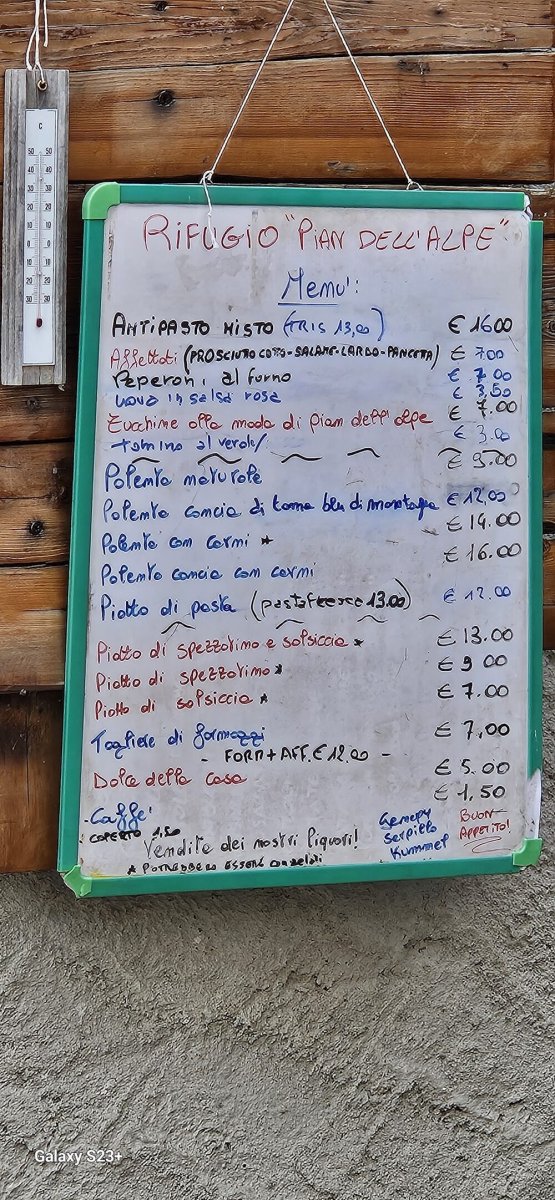 C
50 50
40 40
30 30
20 20
10 10
0 0
10 10
20 20
30 30
RIFUGIO "PIAN DELL'ALPE"
Menu':
ANTIPASTO MISTO (TRIS 13,00) € 16 00
Affettati (PROSCIUTO COTTO-SALAME-LARDO-PANCETA) € 7 00
Peperoni al furno € 7 00
uova in salsa rosa € 3,50
Zucchine alla moda di pian dell'alpe € 7.00
tomino al verde € 3.00
Polenta naturale € 9.00
Polenta concia di toma blu di montagna € 12,00
Polenta con carni * € 14.00
Polenta concia con carni € 16.00
Piatto di pasta (pasta fresca 13.00) € 12.00
Piatto di spezzatino e salsiccia * € 13.00
Piatto di spezzatino * € 9 00
Piatto di salsiccia * € 7.00
Tagliere di formaggi € 7,00
- FORM + AFF. € 12.00 -
Dolce della casa € 5.00
-Caffe' € 1,50
COPERTO 1.50
Vendita dei nostri liquori!
Genepy
Serpillo
Kummel
BUON
APPETITO!
* POTREBBERO ESSERE CONGELATI
Galaxy S23+